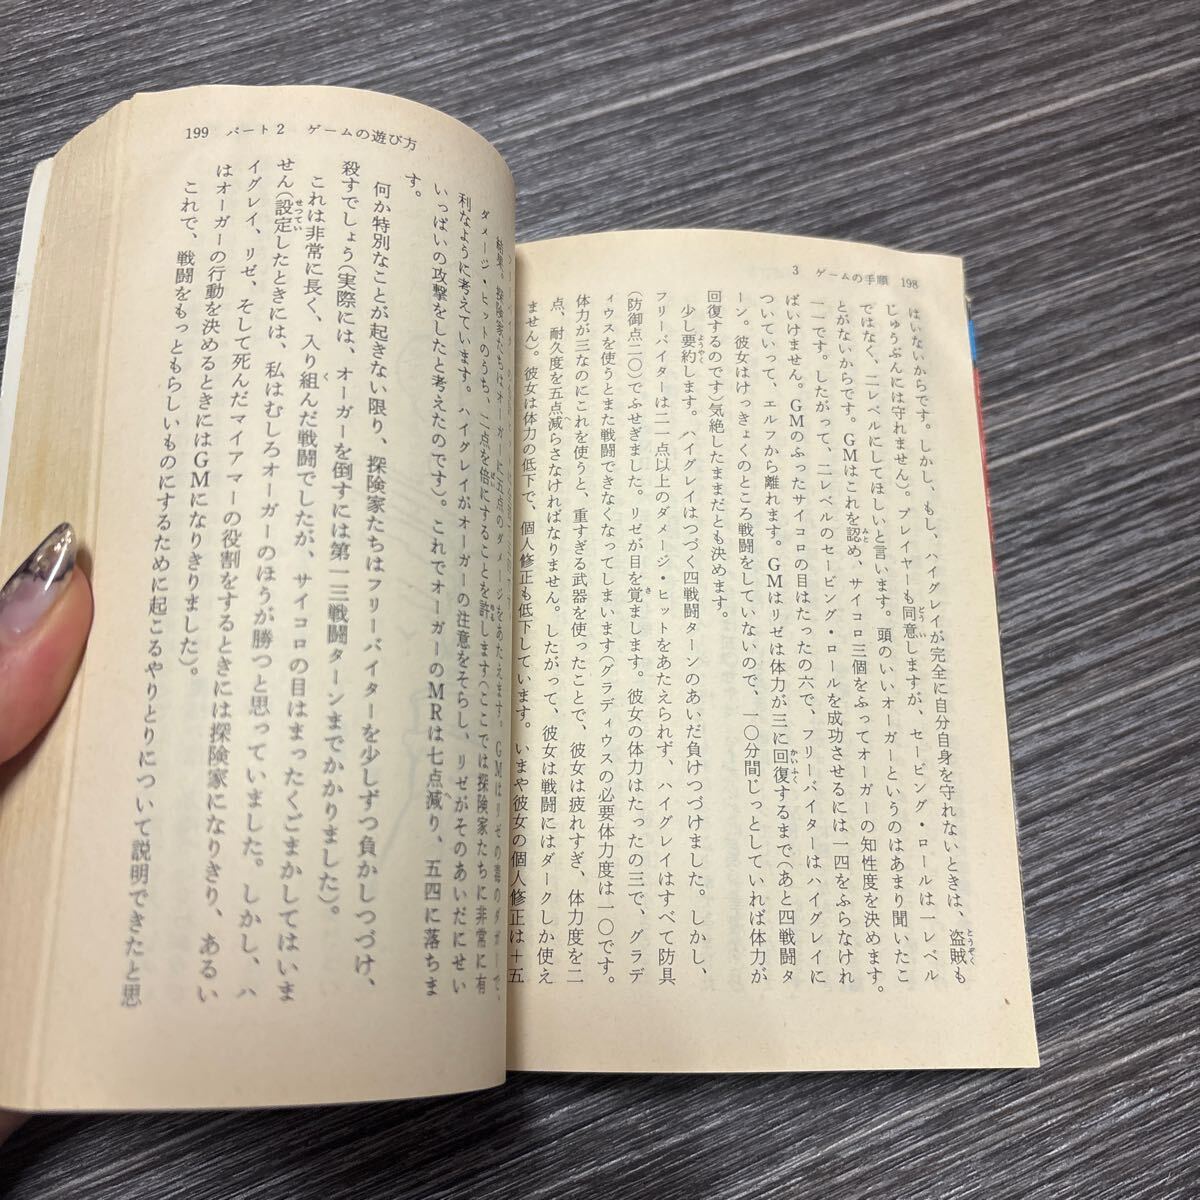 3 ゲームの手順 198
はいないからです。しかし、もし、ハイグレイが完全に自分自身を守れないときは、盗賊も
じゅうぶんには守れません）。プレイヤーも同意しますが、セービング・ロールは一レベル
ではなく、二レベルにしてほしいと言います。頭のいいオーガーというのはあまり聞いたこ
とがないからです。GMはこれを認め、サイコロ三個をふってオーガーの知性度を決めます。
一一です。したがって、二レベルのセービング・ロールを成功させるには一四をふらなけれ
ばいけません。GMのふったサイコロの目はたったの六で、フリーバイターはハイグレイに
ついていって、エルフから離れます。GMはリゼは体力が三に回復するまで（あと四戦闘タ
ーン。彼女はけっきょくのところ戦闘をしていないので、一〇分間じっとしていれば体力が
回復するのです）気絶したままだとも決めます。
少し要約します。ハイグレイはつづく四戦闘ターンのあいだ負けつづけました。しかし、
フリーバイターは二一点以上のダメージ・ヒットをあたえられず、ハイグレイはすべて防具
（防御点二〇）でふせぎました。リゼが目を覚まします。彼女の体力はたったの三で、グラデ
ィウスを使うとまた戦闘できなくなってしまいます（グラディウスの必要体力度は一〇です。
体力が三なのにこれを使うと、重すぎる武器を使ったことで、彼女は疲れすぎ、体力度を二
点、耐久度を五点減らさなければなりません。したがって、彼女は戦闘にはダークしか使え
ません）。彼女は体力の低下で、個人修正も低下しています。いまや彼女の個人修正は＋五
199 パート2 ゲームの遊び方
結果。探険家たちはオーガーに五点のダメージをあたえます。GMはリゼの毒のダガーで、
ダメージ・ヒットのうち、二点を倍にすることを許します（ここでは探険家たちに非常に有
利なように考えています。ハイグレイがオーガーの注意をそらし、リゼがそのあいだにせい
いっぱいの攻撃をしたと考えたのです）。これでオーガーのMRは七点減り、五四に落ちま
す。
何か特別なことが起きない限り、探険家たちはフリーバイターを少しずつ負かしつづけ、
殺すでしょう（実際には、オーガーを倒すには第一三戦闘ターンまでかかりました）。
これは非常に長く、入り組んだ戦闘でしたが、サイコロの目はまったくごまかしてはいま
せん（設定したときには、私はむしろオーガーのほうが勝つと思っていました。しかし、ハ
イグレイ、リゼ、そして死んだマイアマーの役割をするときには探険家になりきり、あるい
はオーガーの行動を決めるときにはGMになりきりました）。
これで、戦闘をもっともらしいものにするために起こるやりとりについて説明できたと思